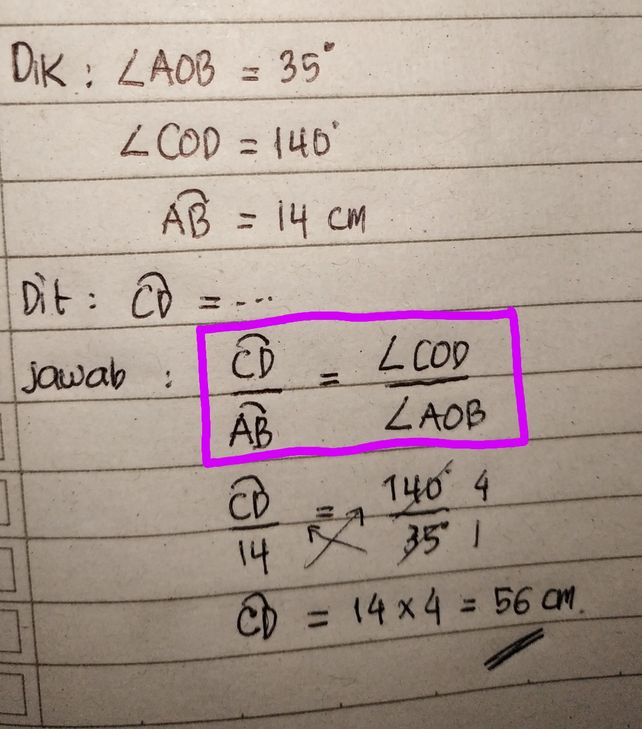 Dik : ∠AOB = 35°
∠COD = 140°
A͡B = 14 cm
Dit : C͡D = ....
jawab : C͡D / A͡B = ∠COD / ∠AOB
C͡D / 14 = 140° 4 / 35° 1
C͡D = 14 × 4 = 56 cm.